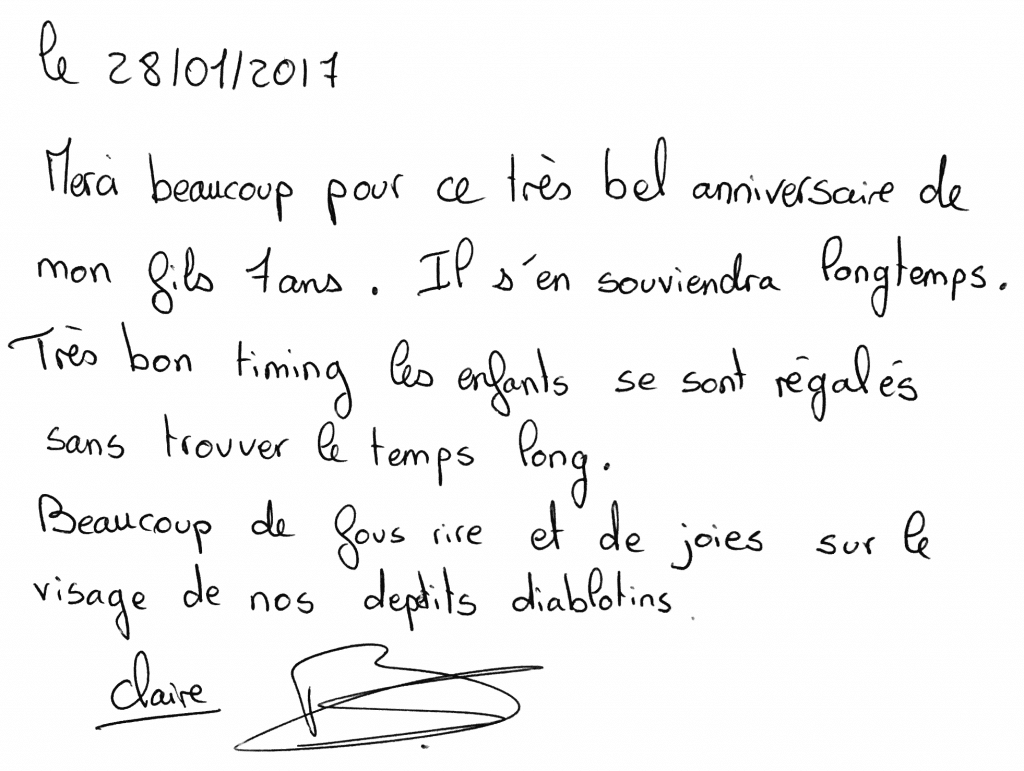 le 28/01/2017
Merci beaucoup pour ce très bel anniversaire de
mon fils 7ans. Il s'en souviendra longtemps.
Très bon timing les enfants se sont régalés
sans trouver le temps long.
Beaucoup de fous rire et de joies sur le
visage de nos deptits diablotins.
Claire